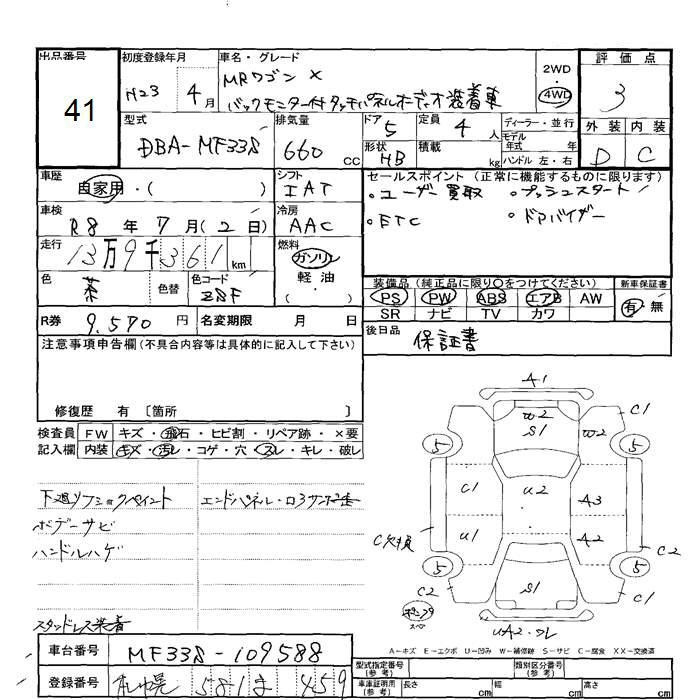 出品番号
41
初度登録年月
H23 4月
車名・グレード
MRワゴン X
バックモニター付タッチパネルオーディオ装着車
2WD
4WD
評価点
3
外装 内装
D C
型式
DBA-MF33S
排気量
660 cc
ドア 5
定員 4 人
形状 HB
積載 kg
ディーラー・並行
モデル年式 年
ハンドル 左・右
車歴
自家用・( )
シフト
IAT
車検
R8年 7月(2日)
冷房
AAC
走行
13万9千361km
燃料
ガソリン
軽油
・( )
色 茶
色替
色コード ZSF
R券 9,570 円
名変期限 月 日
セールスポイント (正常に機能するものに限ります)
・ユーザー買取 ・プッシュスタート
・ETC ・ドアバイザー
装備品(純正品に限り○をつけてください)
PS PW ABS エアB AW
SR ナビ TV カワ
新車保証書
有 無
後日品 保証書
注意事項申告欄(不具合内容等は具体的に記入して下さい)
修復歴 有 〔箇所 〕
検査員記入欄
FW キズ・飛石・ヒビ割・リペア跡・×要
内装 キズ・汚レ・コゲ・穴・スレ・キレ・破レ
下廻リフショクペイント
エンドパネル・ロ3サンポ走
ボデーサビ
ハンドルハゲ
スタッドレス装着
A1
W2
S1
C1
W2
5
5
C1
U2
A3
U1
A2
C欠損
C2
5
5
C2
S1
C1
UA2・ワレ
A-キズ E-エクボ U-凹み W-補修跡 S-サビ C-腐食 XX-交換済
車台番号 MF33S-109588
登録番号 札幌 581 ま 459
型式指定番号(参考)
類別区分番号(参考)
車庫証明用(参考) 長さ cm 幅 cm 高さ cm